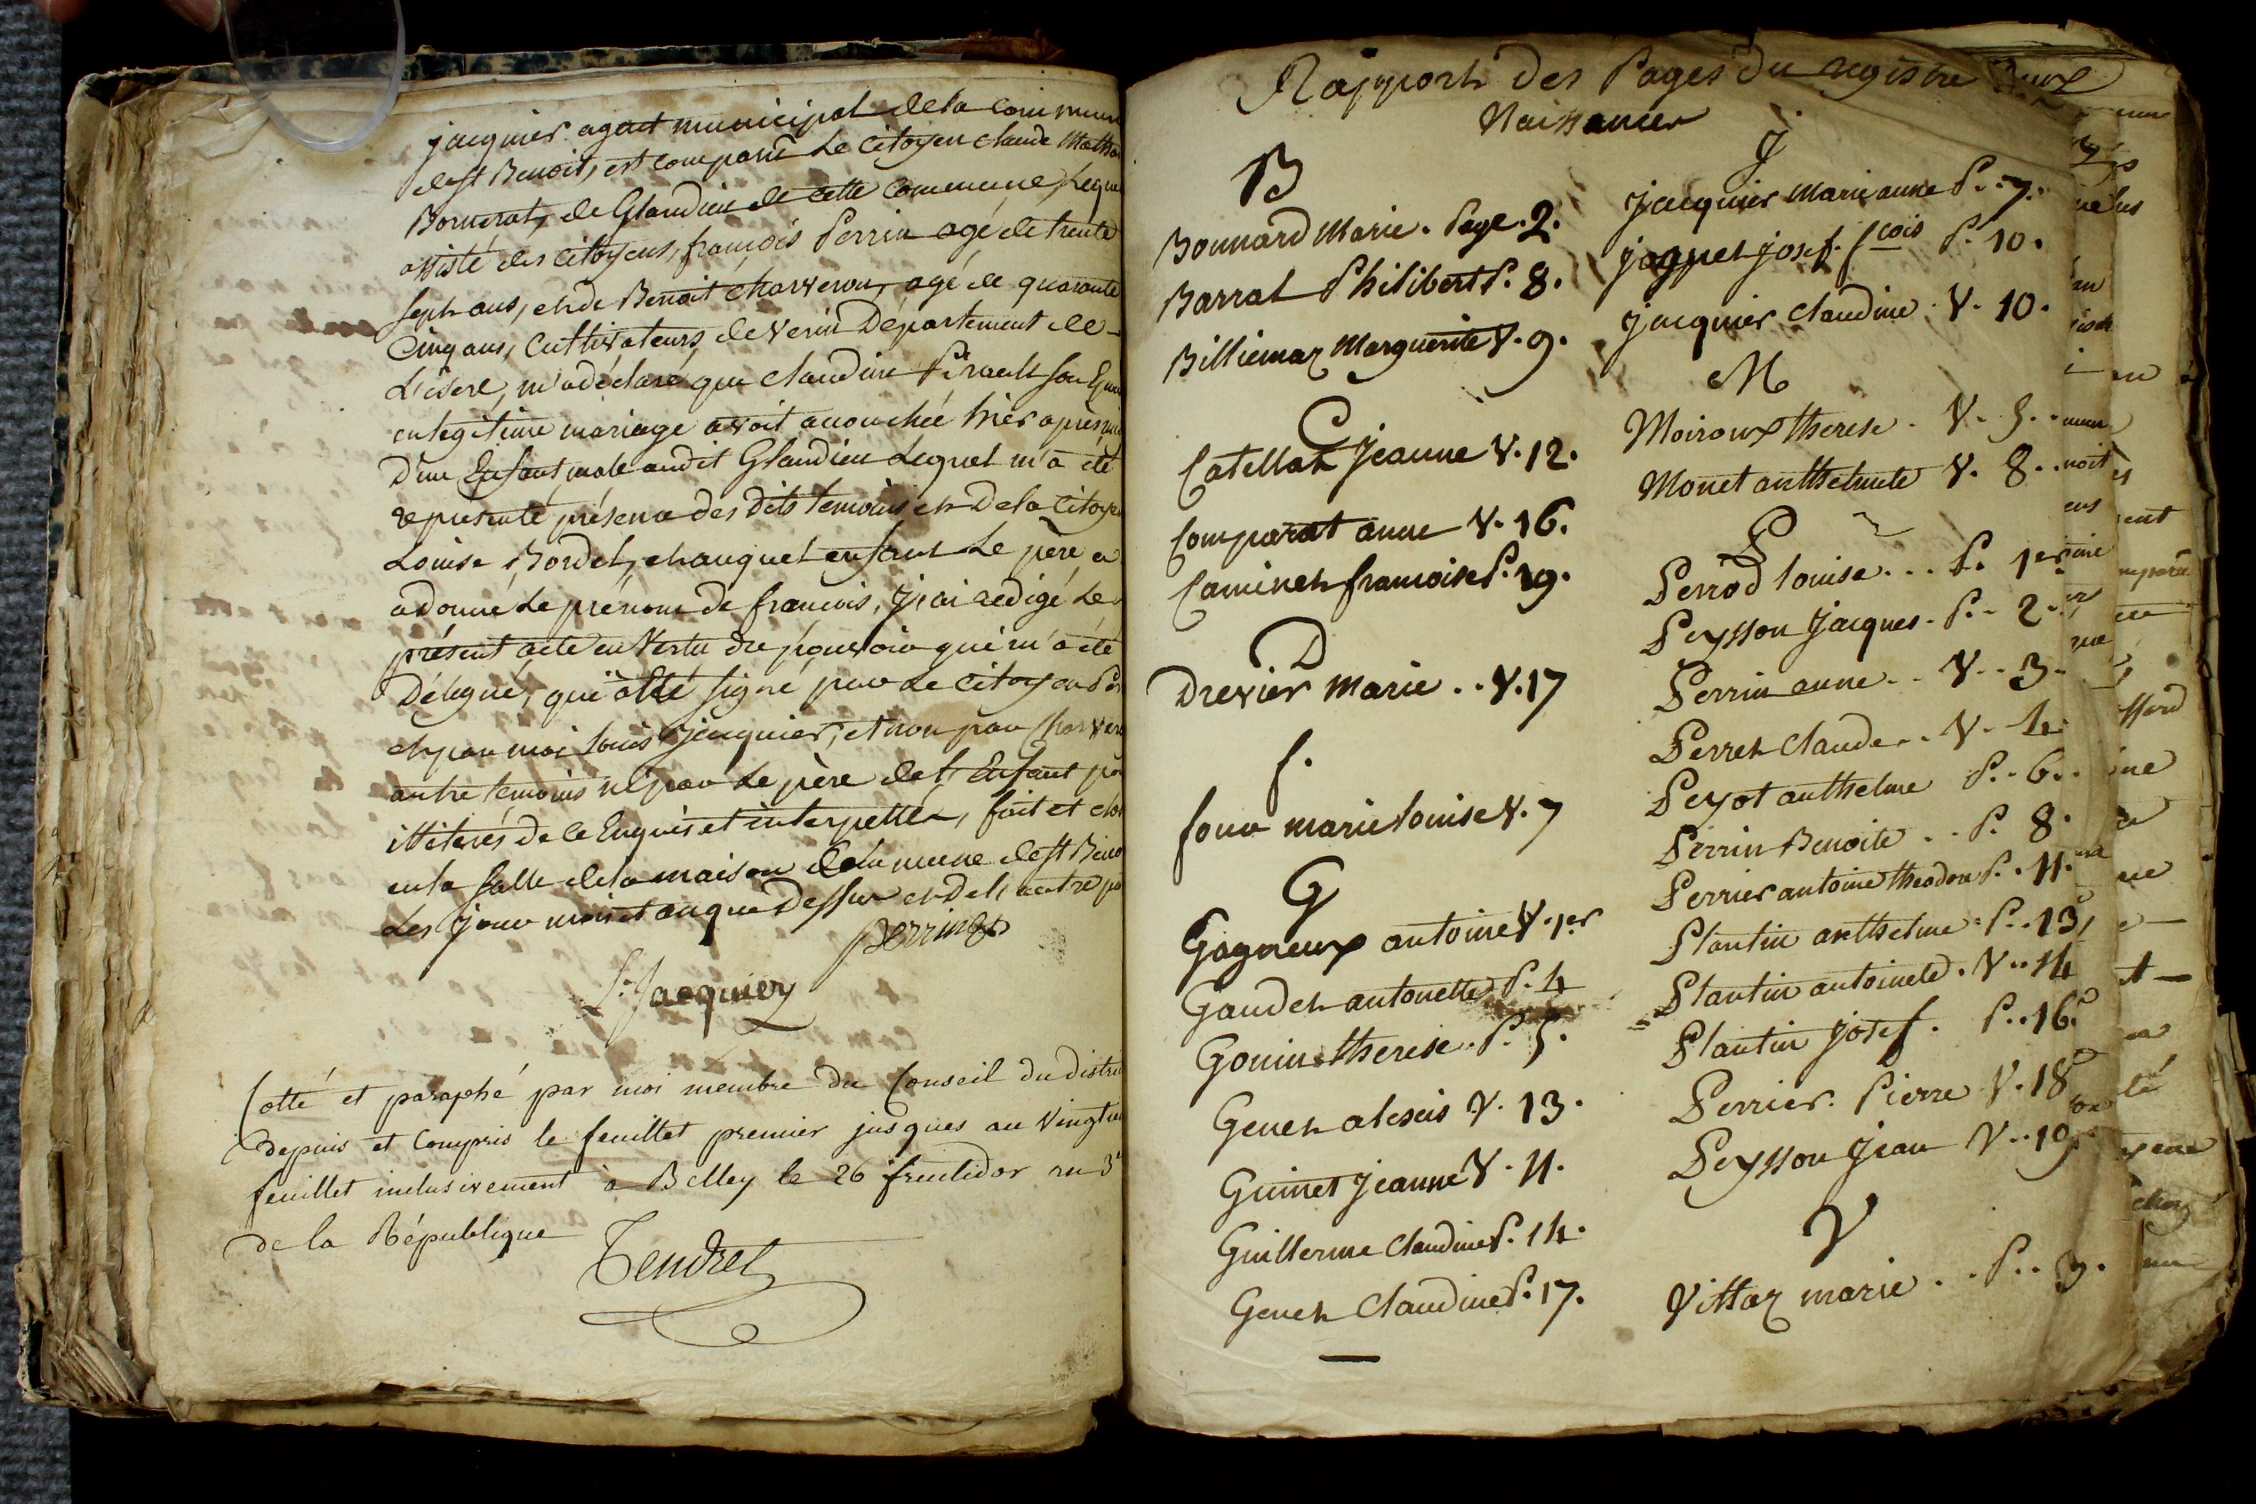 jacquier agent municipal de la commun
de st Benoit, est comparû Le Citoyen claude Matth
Bornerat, de Glandieu de cette commune, Leque
assisté des citoyens, françois Perrin agé de trente
sept ans, et de Benoit charveron, agé de quarante
Cinq ans, cultivateurs de verin Département de
L'isere, m'a déclaré que claudine Pirault son Epou
en legitime mariage avoit accouchée hier après mi
D'un Enfant male audit Glandieu Lequel m'a été
représenté présence des dits temoins et De la Citoye
Louise Bordet, et auquel enfant Le père, a
a donné Le prénom de francois, j'ai redigé Le
présent acte en Vertu du pouvoir qui m'a été
Délegué, qui a été signé par Le Citoyen Per
et par moi Louis jacquier, et non par Charvero
autre temoins ni par Le père de l'Enfant po
illiterés de ce Enquis et interpellés, fait et clos
en la salle de la maison Commune de st Beno
Les jour mois et an que Dessus et De l'autre pa
perrin
Ls Jacquier
Cotté et paraphé par moi membre du Conseil du distri
depuis et Compris le feuillet premier jusques au Vingtu
feuillet inclusivement à Belley le 26 fructidor an 3e
de la République
Tendret
Rapport des Pages du registre Deux
Naissances
B
Bonnard Marie. Page. 2.
Barrat Philibert P. 8.
Billiemaz Marguerite V. 9.
C
Catellat Jeanne V. 12.
Comparat anne V. 16.
Caminet francoise P. 19.
D
Drevier Marie .. V. 17
f.
four marie louise V. 7
G
Gagneux antoine V. 1er
Gaudet antonette P. 4
Gonin therese. P. 5.
Genet alexis V. 13.
Guinet Jeanne V. 11.
Guillerme Claudine P. 14.
Genet Claudine P. 17.
J
jacquier Marie anne P. . 7.
jaquet josef. fcois P. 10.
jacquier claudine. V. 10.
M
Moiroux therese. V. 5.
Monet anthelmete V. 8.
P
Perrod louise... P. 1er
Peysson Jacques. P. . 2.
Perrin anne.. V.. 3.
Perret claude.. V. 4.
Peyot anthelme P.. 6.
Perrin Benoite.. P. 8.
Perrier antoine theodore P. . 11.
Plantin anthelme. P. . 13
Plantin antoinete. V.. 14
Plantin josef. P. . 16.
Perrier. Pierre V. 18
Peysson Jean V.. 19
V
Vittaz marie.. P. . 3.